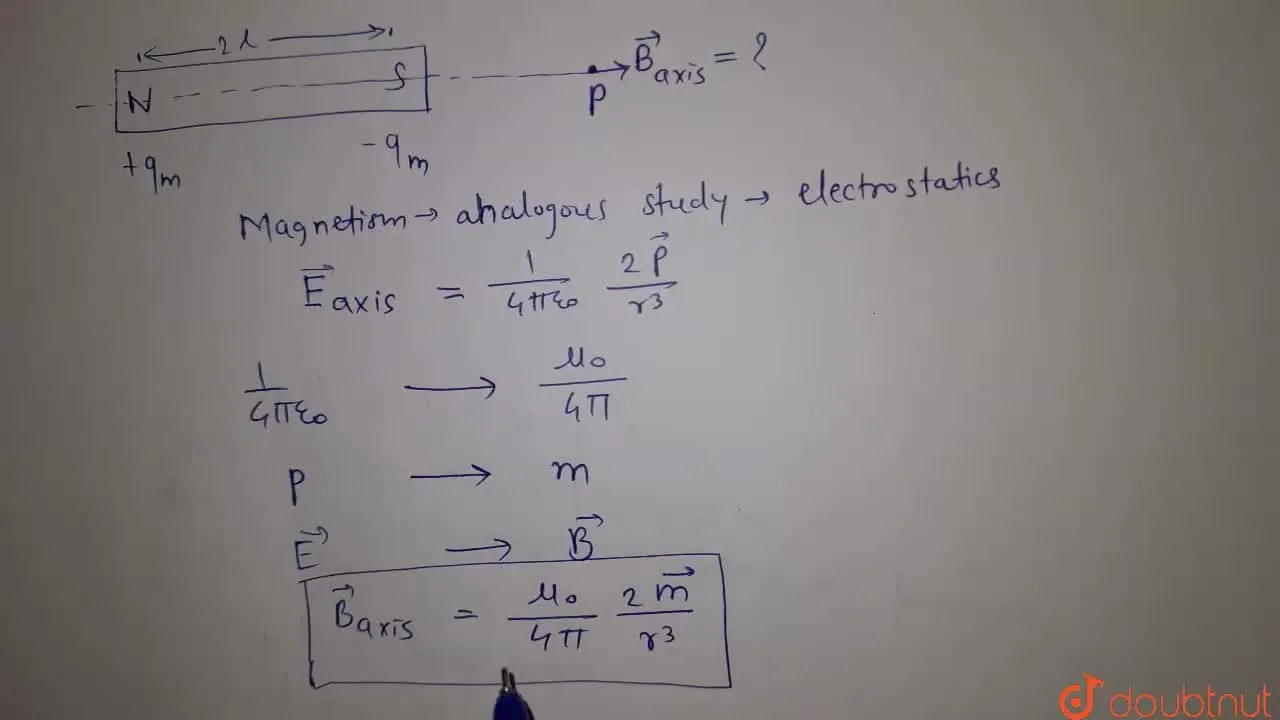 2l
N S P B⃗axis = ?
+qm -qm
Magnetism → analogous study → electrostatics
E⃗axis = 1/4πε₀ 2P⃗/r³
1/4πε₀ → μ₀/4π
P → m
E⃗ → B⃗
B⃗axis = μ₀/4π 2m⃗/r³
doubtnut